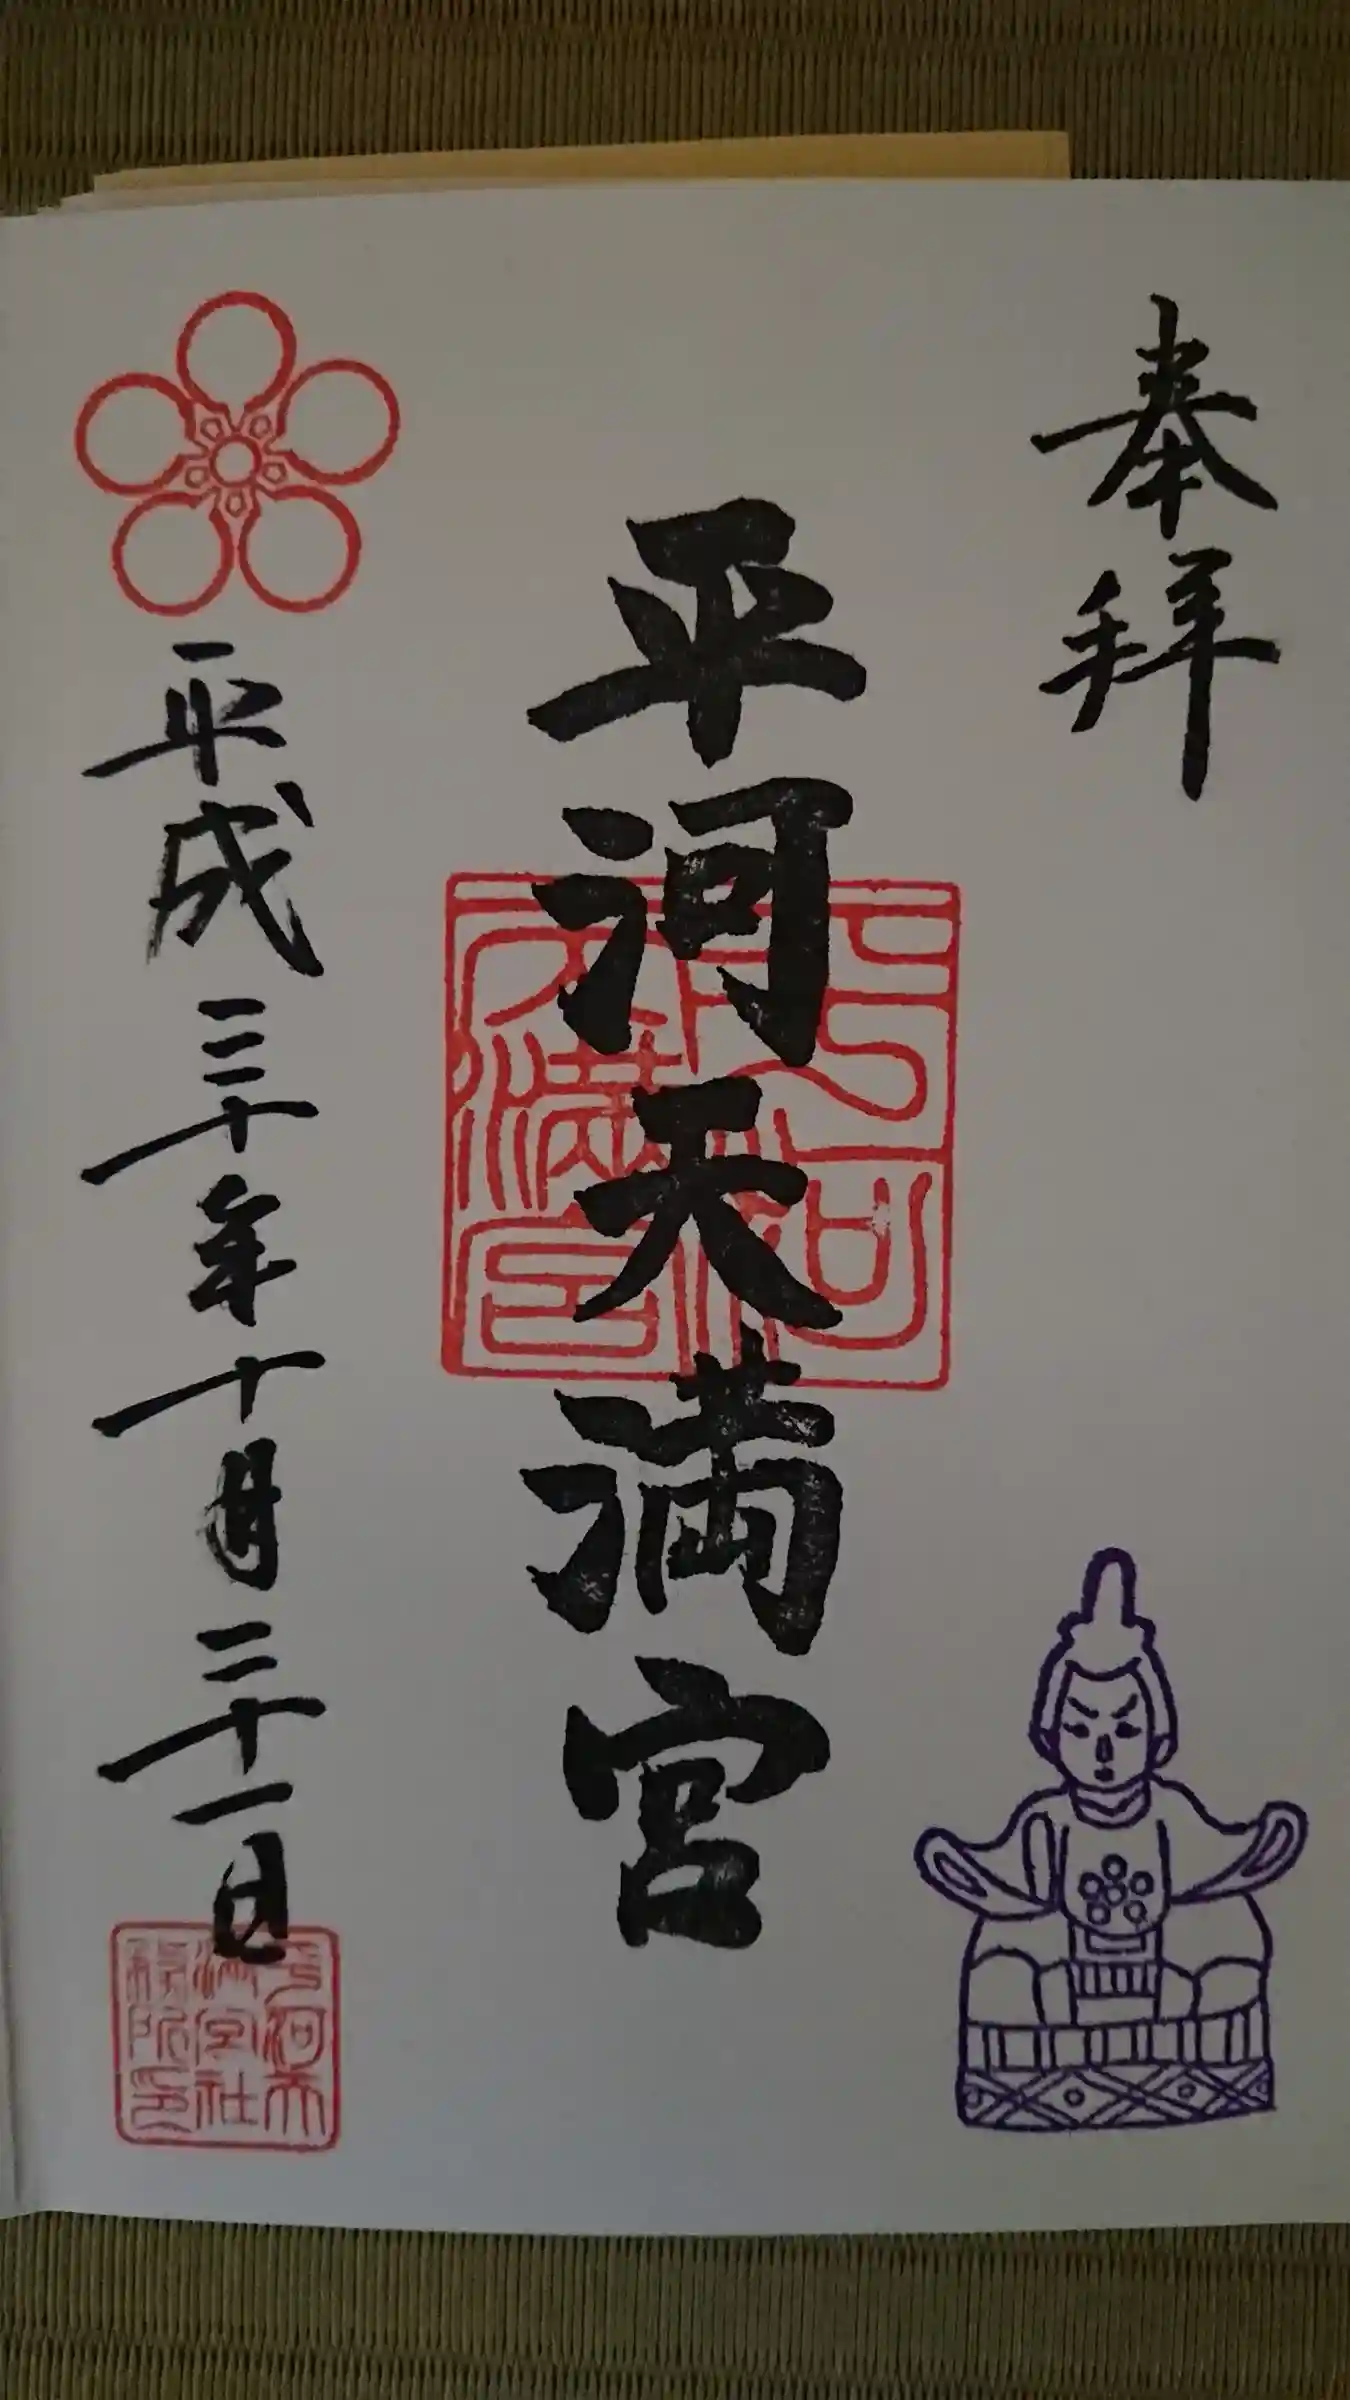 奉拝
平河天満宮
平河天満宮
平成三十年十月三十一日
平河天
満宮社
務所印